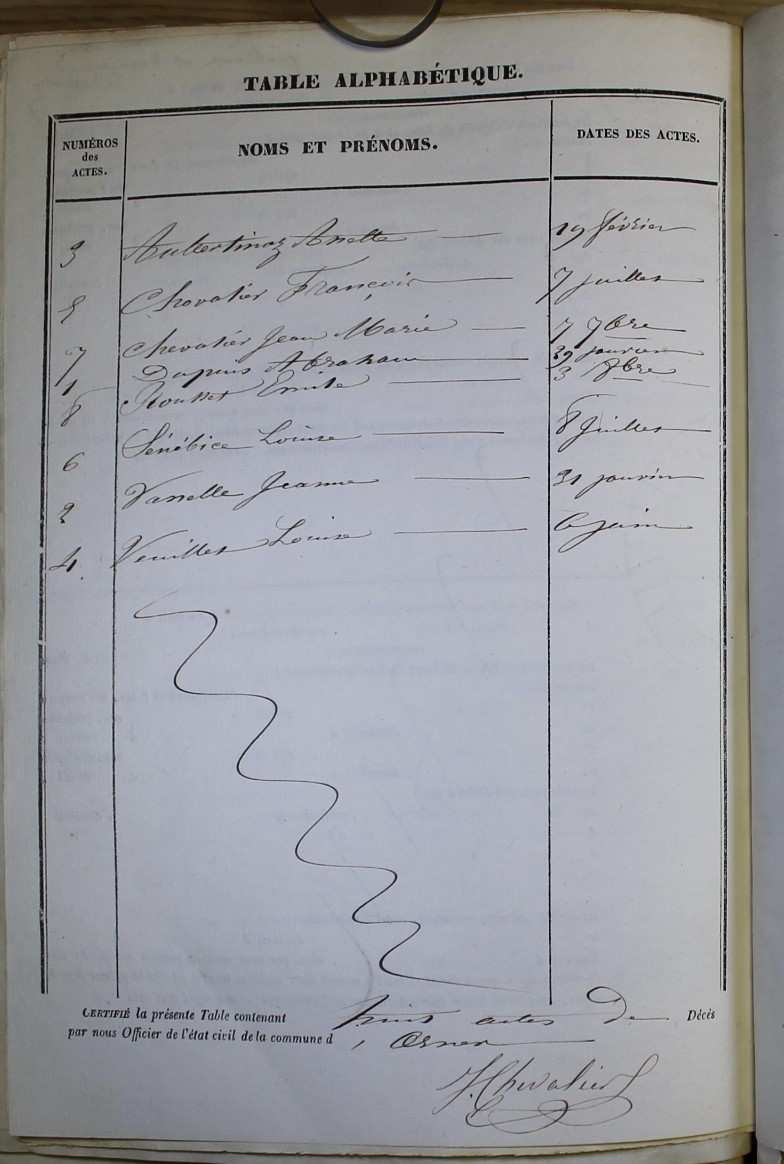 TABLE ALPHABÉTIQUE.
NUMÉROS des ACTES. NOMS ET PRÉNOMS. DATES DES ACTES.
3 Aubertinaz Anette 19 février
5 Chevalier François 7 juillet
7 Chevalier Jean Marie 7 7bre
1 Dupuis Abraham 29 janvier
8 Rousset Emile 3 8bre
6 Sénébice Louise 8 Juillet
2 Vanelle Jeanne 31 janvier
4 Veuillet Louise 6 juin
CERTIFIÉ la présente Table contenant huit actes De Décés
par nous Officier de l'état civil de la commune d' Ornex
J. Chevalier